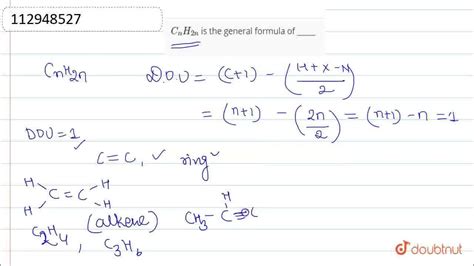 112948527
CₙH₂ₙ is the general formula of ____
CnH2n D.O.U = (C+1) - (H+X-N / 2)
= (n+1) - (2n / 2) = (n+1) - n = 1
DOU = 1
C=C, ✓ ring ✓
H H
C=C
H H
(alkene) H
C2H4, C3H6 CH3-C=O
doubtnut